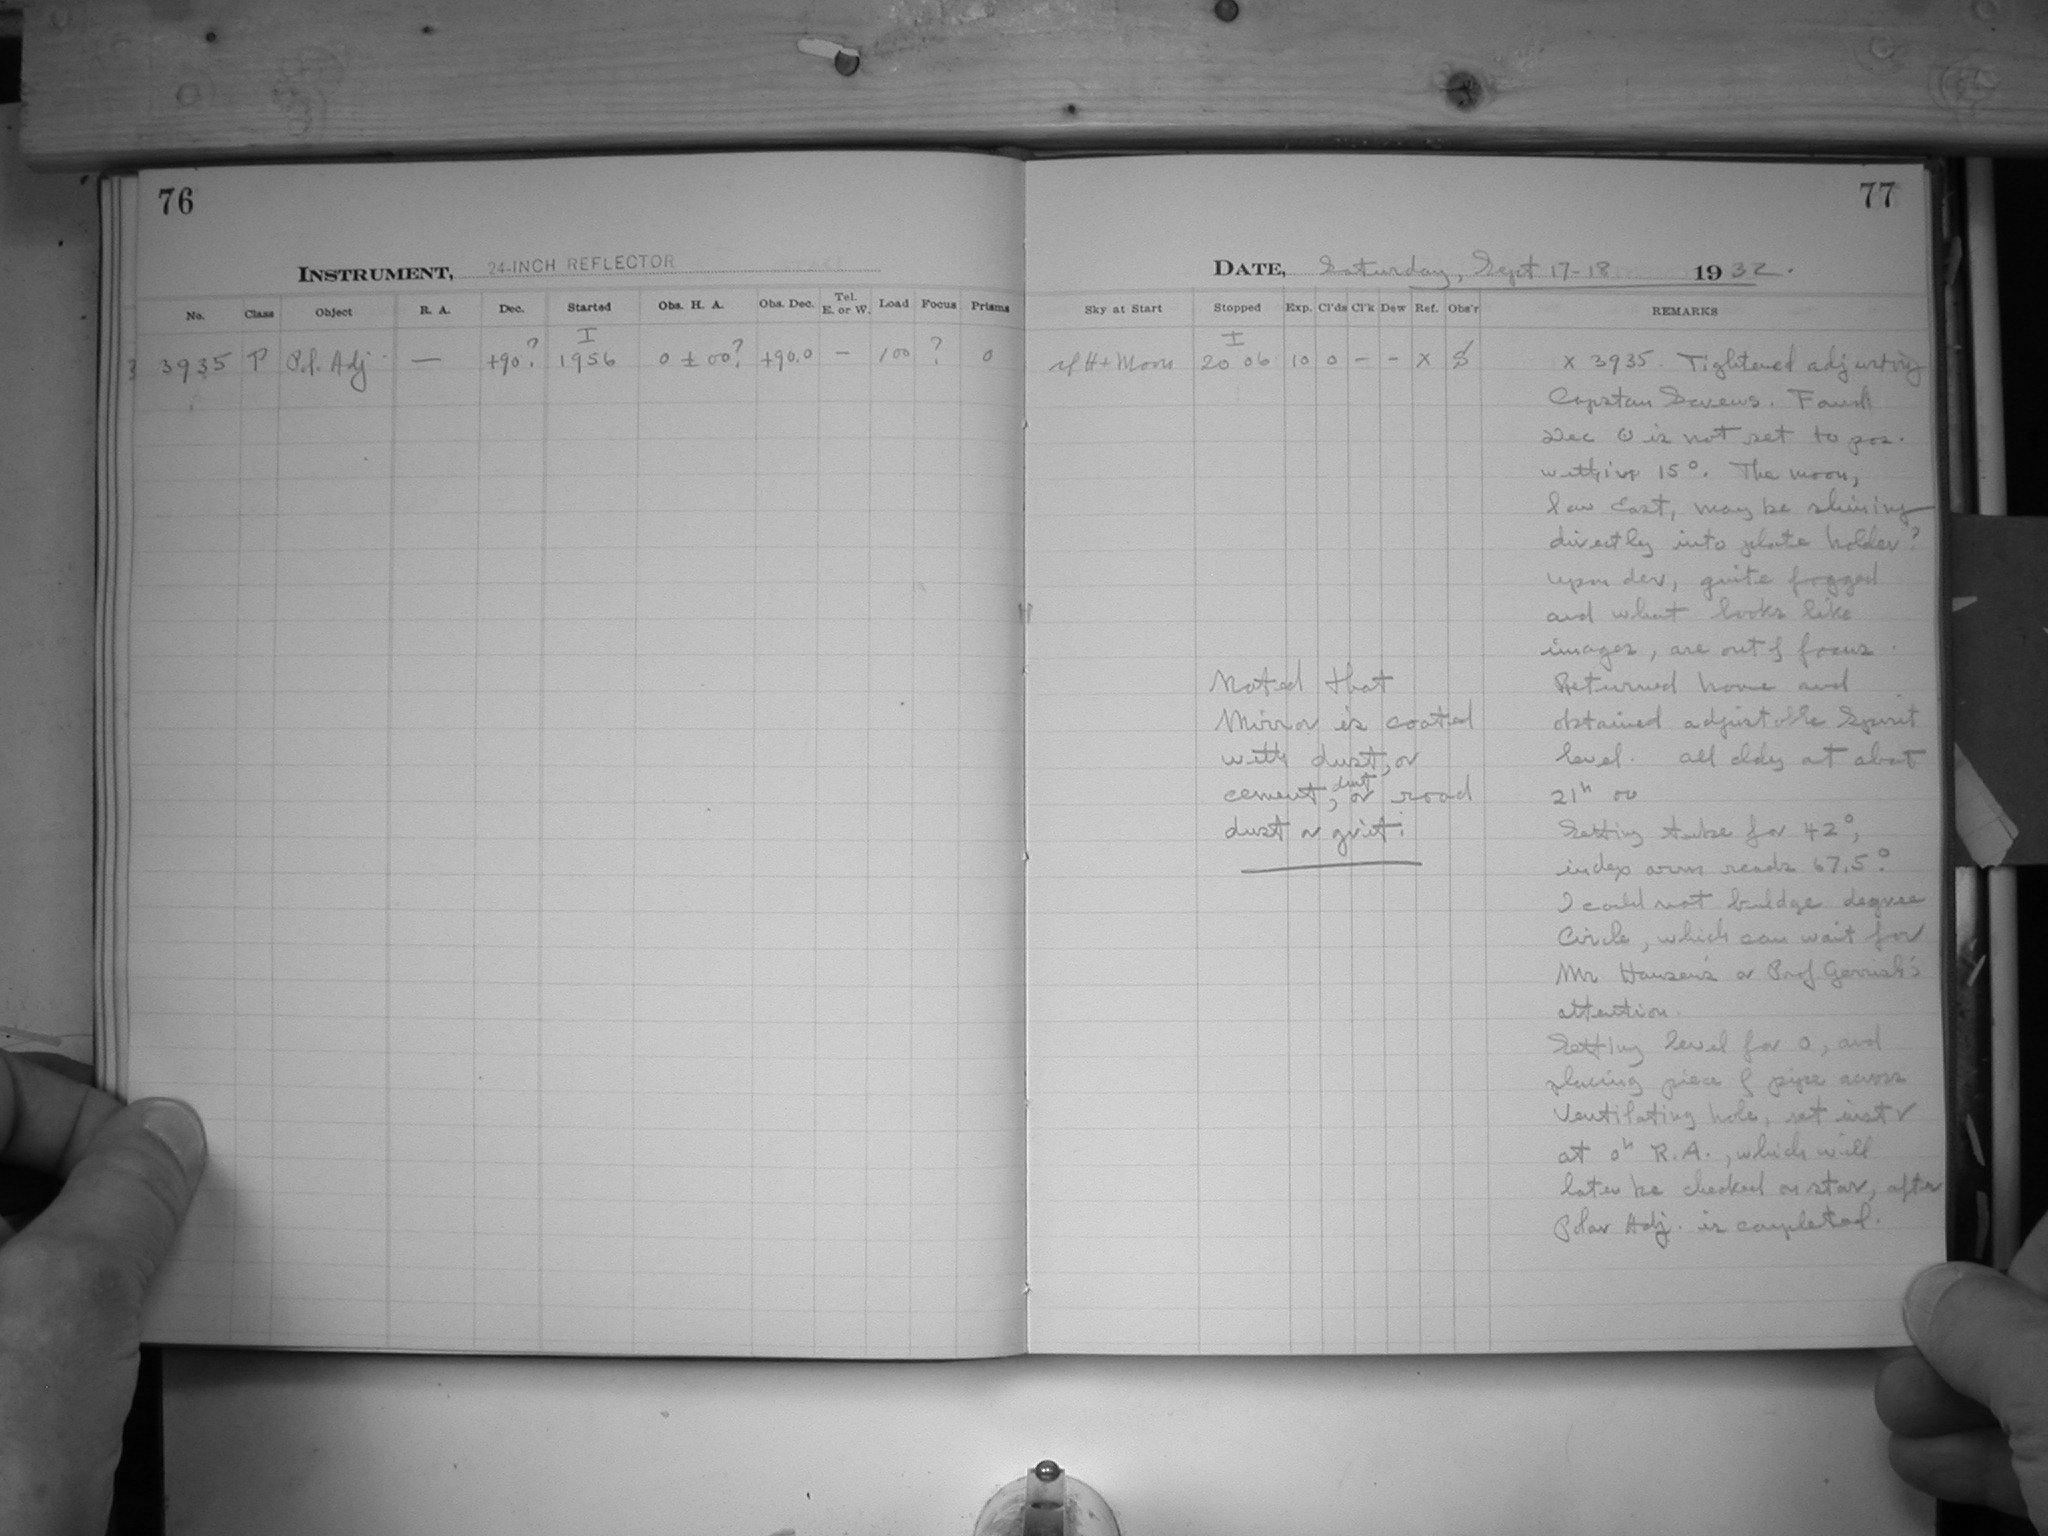 76
INSTRUMENT, 24-INCH REFLECTOR
No. Class Object R. A. Dec. Started Obs. H. A. Obs. Dec. Tel. E. or W. Load Focus Prisms
I
3935 P Pol. Adj. — +90? 1956 0 ± 00? +90.0 – 100 ? 0
77
DATE, Saturday, Sept 17-18 1932.
Sky at Start Stopped Exp. Cl'ds Cl'k Dew Ref. Obs'r REMARKS
I
H + Moon 20 06 10 0 – – X
x 3935. Tightened adjusting
Capstan Screws. Found
Dec ⊙ is not set to pos.
within 15°. The moon,
low East, may be shining
directly into plate holder?
upon dev, quite fogged
and what looks like
images, are out of focus.
Returned home and
obtained adjustable Spirit
level. all cldy at about
21h 00
Setting tube for 42°,
index arm reads 67.5°.
I could not buldge degree
Circle, which can wait for
Mr Hansen's or Prof Gerrish's
attention.
Setting level for 0, and
placing piece of pipe across
Ventilating hole, set instr
at 0h R.A., which will
later be checked on star, after
Polar Adj. is completed.
Noted that
Mirror is coated
with dust, or
cement dust, or road
dust or grit.